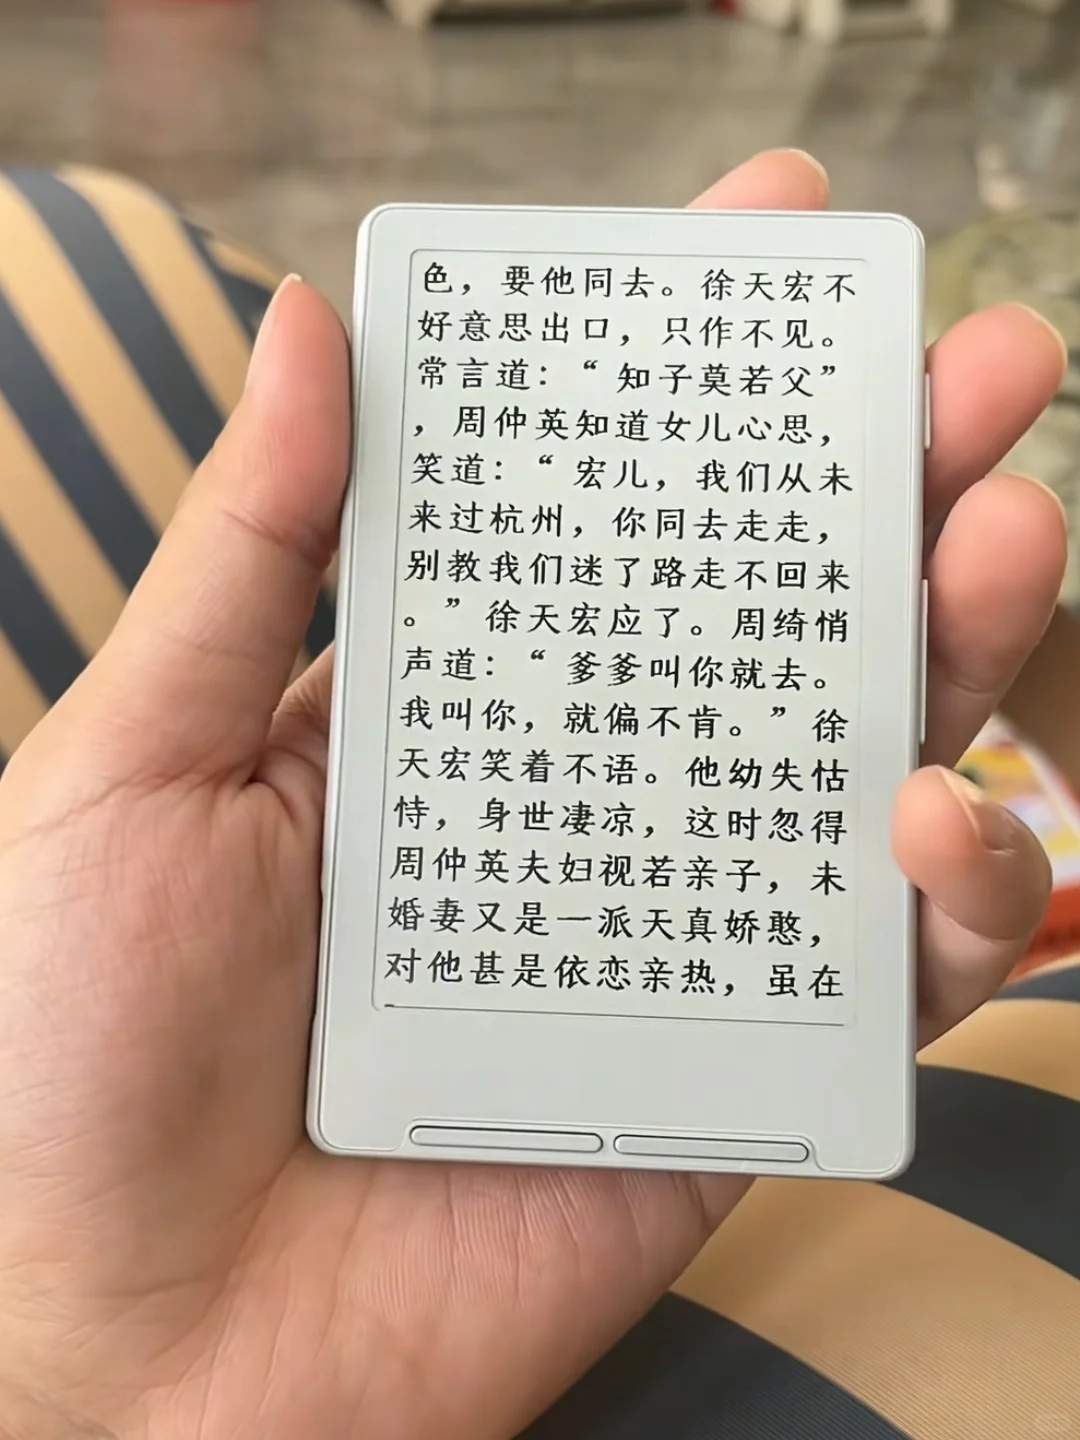 色，要他同去。徐天宏不
好意思出口，只作不见。
常言道：“知子莫若父”
，周仲英知道女儿心思，
笑道：“宏儿，我们从未
来过杭州，你同去走走，
别教我们迷了路走不回来
。”徐天宏应了。周绮悄
声道：“爹爹叫你就去。
我叫你，就偏不肯。”徐
天宏笑着不语。他幼失怙
恃，身世凄凉，这时忽得
周仲英夫妇视若亲子，未
婚妻又是一派天真娇憨，
对他甚是依恋亲热，虽在